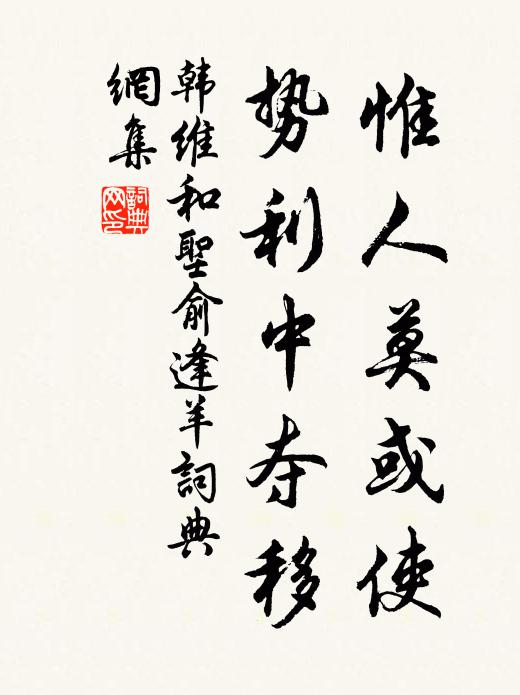 惟人莫或使
势利中夺移
韩维和聖俞逢羊詞典
網集
詞典
网印